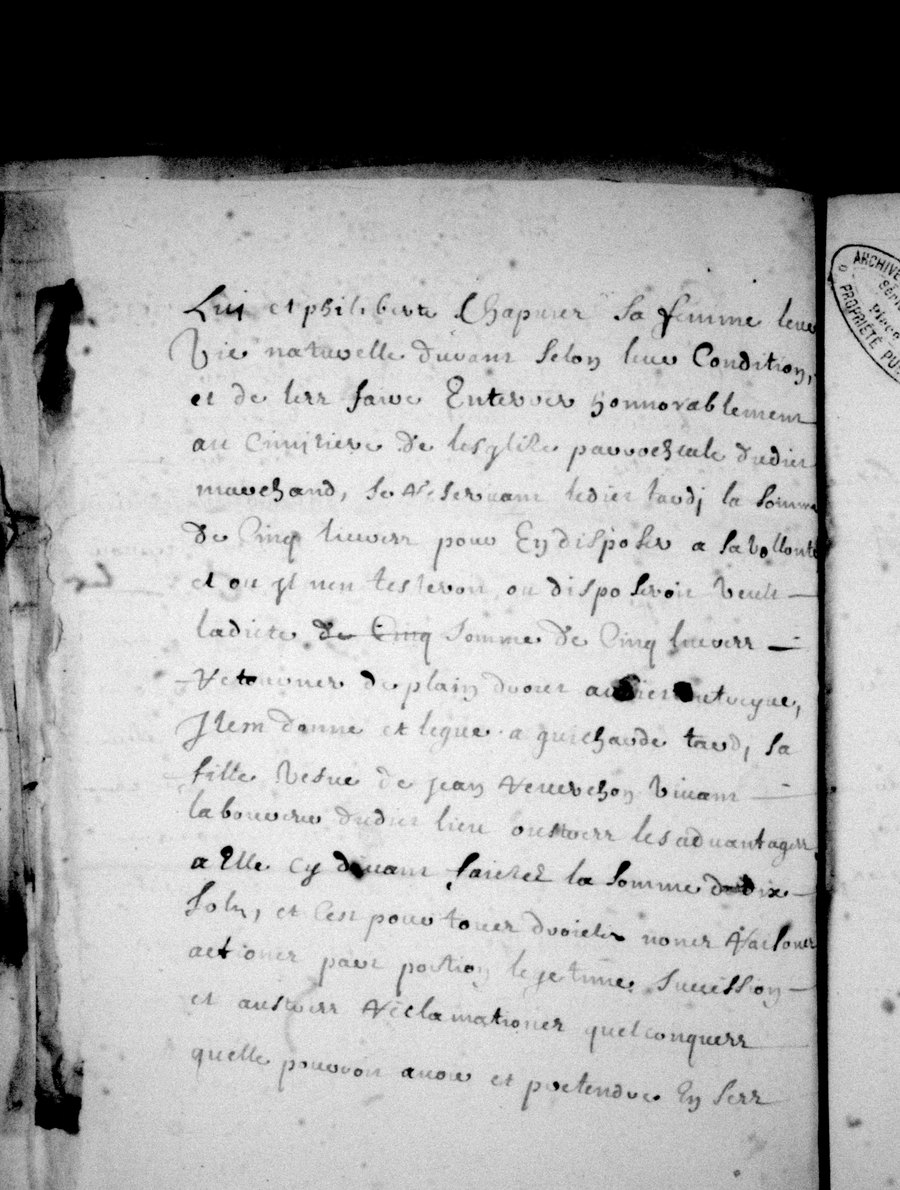 Luy et philiberte Chapuser sa femme leur
Vie naturelle durant selon leur Condition,
et de les faire Enterrer honnorablement
au Cimitiere de lesglise parrochiale dudict
marchand, se Reservant ledict tardj la somme
de Cinq livres pour En disposer a sa vollonte
et ou jl nen testeroit ou disposeroit veult
ladicte de Cinq somme de Cinq livres
Retourner de plain droict audict
Jtem donne et legue a guicharde tardj sa
fille vefve de jean vivant
laboureur dudict lieu oultres les advantages
a Elle cy devant faictes la somme de dix
solz, et Cest pour toutes droictz noms Raisons
actions part portion legetime succession
et aultres Reclamationes quelconques
quelle pourroit avoir et pretendre En ses
ARCHIVE
Séri
Pièce
PROPRIÉTÉ PU